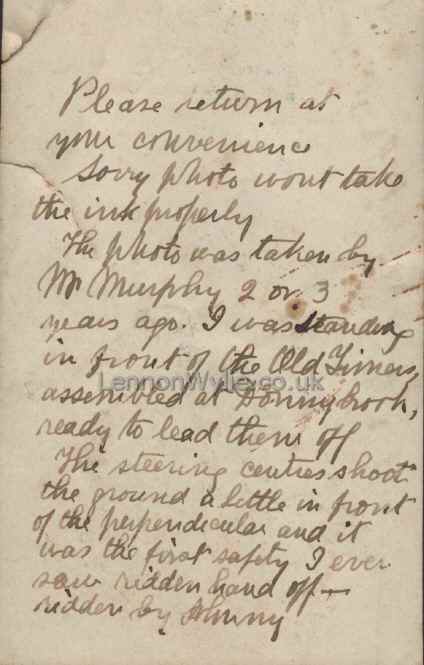 Please return at
your convenience
Sorry photo wont take
the ink properly
The photo was taken by
Mr Murphy 2 or 3
years ago. I was standing
in front of the Old Timers,
LennonWylie.co.uk
assembled at Donnybrook,
ready to lead them off
The steering centres shoot
the ground a little in front
of the perpendicular and it
was the first safety I ever
saw ridden hand off —
ridden by Johnny